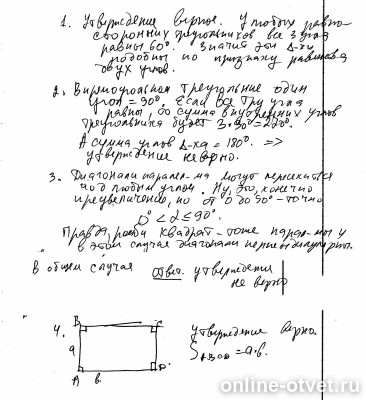 1. Утверждение верное. У любых равно-
сторонних треугольников все 3 угла
равны 60°. Значит эти Δ-ки
подобны по признаку равенства
двух углов.
2. В прямоугольном треугольнике один
угол = 90°. Если все три угла
равны, то сумма внутренних углов
треугольника будет 3·90° = 270°.
А сумма углов Δ-ка = 180°. =>
утверждение неверно.
3. Диагонали парал-ма могут пересекаться
под любым углом. Ну, это, конечно
преувеличение, но от 0 до 90° - точно
0° < α ≤ 90°.
Правда, ромб и квадрат - тоже парал-мы и
в этом случае диагонали перпендикулярны.
В общем случае Ответ: утверждение
не верно
4. B C утверждение верно.
a S ABCD = a·b.
A b D
online-otvet.ru